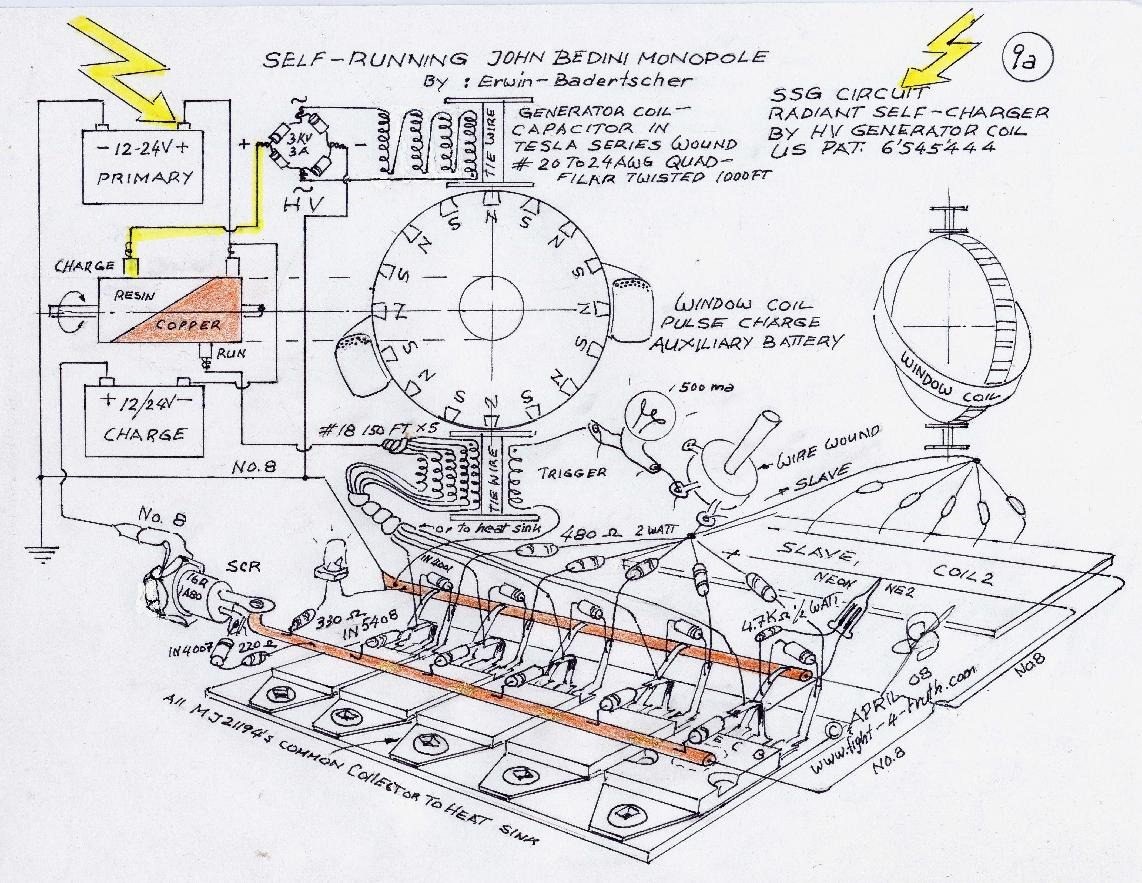 SELF-RUNNING JOHN BEDINI MONOPOLE
By : Erwin-Badertscher
9a
SSG CIRCUIT
RADIANT SELF-CHARGER
BY HV GENERATOR COIL
US PAT. 6'545'444
GENERATOR COIL-
CAPACITOR IN
TESLA SERIES WOUND
# 20 TO 24 AWG QUAD-
FILAR TWISTED 1000FT
TIE WIRE
- 12-24V +
PRIMARY
~
+ 3KV -
3A
~
HV
CHARGE
RESIN
COPPER
RUN
+ 12/24V -
CHARGE
N
S
N
S
N
S
N
S
N
S
N
S
N
S
N
S
WINDOW COIL
PULSE CHARGE
AUXILIARY BATTERY
WINDOW COIL
500 ma
WIRE WOUND
SLAVE
#18 150 FT x5
No.8
TIE WIRE
TRIGGER
or to heat sink
480 Ω 2 WATT
No. 8
SCR
16R
A80
IN4001
- SLAVE,
COIL 2
+
NEON NE2
4.7KΩ 1/2 WATT
330 Ω
IN5408
IN4007
220 Ω
E C
All MJ21194's COMMON COLLECTOR TO HEAT SINK
© APRIL 08
www.fight-4-truth.com
No.8
No.8